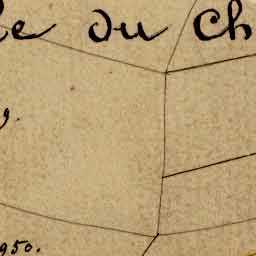 le du Ch
9.
950.